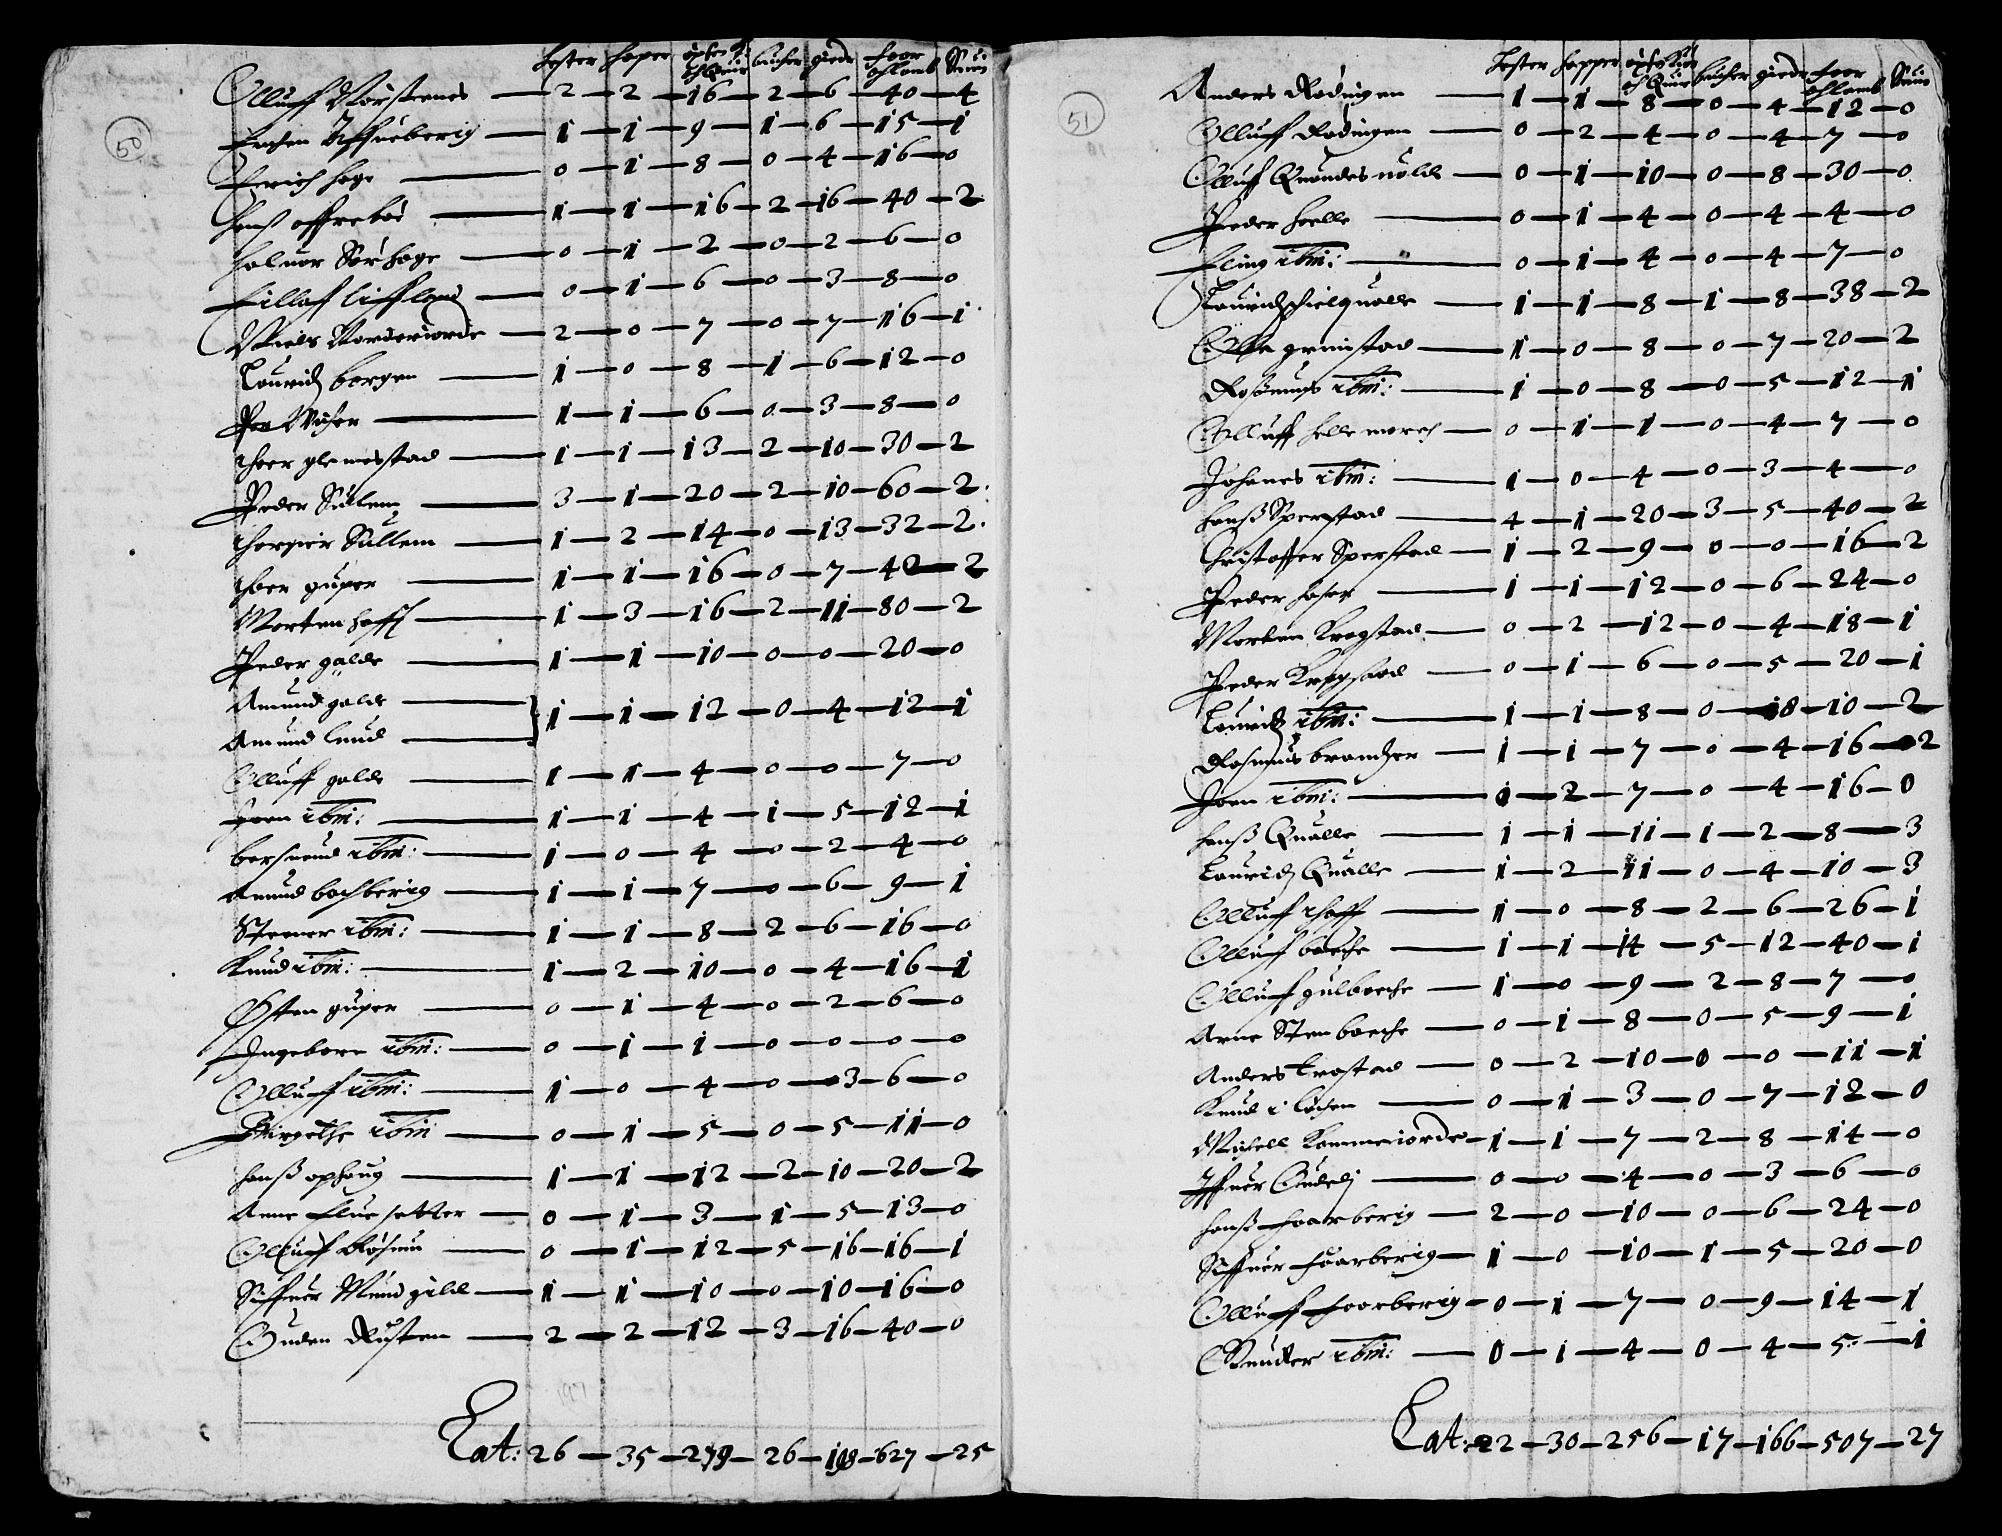 50
hester hoper øxen och Queig bucher gieder foor och lamb Suin
Olluff Norsteenes — 2 — 2 — 16 — 2 — 6 — 40 — 4
1 — 1 — 9 — 1 — 6 — 15 — 1
Erich hage — 0 — 1 — 8 — 0 — 4 — 16 — 0
1 — 1 — 16 — 2 — 16 — 40 — 2
Haluor Sørhage — 0 — 1 — 2 — 0 — 2 — 6 — 0
0 — 1 — 6 — 0 — 3 — 8 — 0
Niels Norderiorde — 2 — 0 — 7 — 0 — 7 — 16 — 1
Lauridz borgen — 1 — 0 — 8 — 1 — 6 — 12 — 0
1 — 1 — 6 — 0 — 3 — 8 — 0
thoer glemestad — 1 — 1 — 13 — 2 — 10 — 30 — 2
Peder Sullem — 3 — 1 — 20 — 2 — 10 — 60 — 2
thorgier Sullem — 1 — 2 — 14 — 0 — 13 — 32 — 2
thoer guper — 1 — 1 — 16 — 0 — 7 — 42 — 2
Morten hoff — 1 — 3 — 16 — 2 — 11 — 80 — 2
Peder galde — 1 — 1 — 10 — 0 — 0 — 20 — 0
Amund galde —
Amund Lund — } 1 — 1 — 12 — 0 — 4 — 12 — 1
Olluff galde — 1 — 1 — 4 — 0 — 0 — 7 — 0
Joen ibm: — 1 — 1 — 4 — 1 — 5 — 12 — 1
bersuend ibm: — 1 — 0 — 4 — 0 — 2 — 4 — 0
Amund bachberig — 1 — 1 — 7 — 0 — 6 — 9 — 1
Steener ibm: — 1 — 1 — 8 — 2 — 6 — 16 — 0
Knud ibm: — 1 — 2 — 10 — 0 — 4 — 16 — 1
Østen guper — 0 — 1 — 4 — 0 — 2 — 6 — 0
Ingebore ibm: — 0 — 1 — 1 — 0 — 0 — 0 — 0
Olluff ibm: — 1 — 0 — 4 — 0 — 3 — 6 — 0
Birgethe ibm — 0 — 1 — 5 — 0 — 5 — 11 — 0
Hanß ophoug — 1 — 1 — 12 — 2 — 10 — 20 — 2
Anne Elue setter — 0 — 1 — 3 — 1 — 5 — 13 — 0
Olluff — 0 — 1 — 12 — 5 — 16 — 16 — 1
Siffuer Mundgild — 1 — 1 — 10 — 0 — 10 — 16 — 0
Guden Rusten — 2 — 2 — 12 — 3 — 16 — 40 — 0
197
Lat: 26 — 35 — 279 — 26 — 198 — 627 — 25
51
hester hopper øxen och Queig bucher gieder foer och lamb Suin
Anders Rødingen — 1 — 1 — 8 — 0 — 4 — 12 — 0
Olluff Rødingen — 0 — 2 — 4 — 0 — 4 — 7 — 0
Olluff Quandesuold — 0 — 1 — 10 — 0 — 8 — 30 — 0
Peder helle — 0 — 1 — 4 — 0 — 4 — 4 — 0
Elling ibm: — 0 — 1 — 4 — 0 — 4 — 7 — 0
Lauridz — 1 — 1 — 8 — 1 — 8 — 38 — 2
Olle grimstad — 1 — 0 — 8 — 0 — 7 — 20 — 2
Rasmus ibm: — 1 — 0 — 8 — 0 — 5 — 12 — 1
Olluff helle march — 0 — 1 — 1 — 0 — 4 — 7 — 0
Johanes ibm: — 1 — 0 — 4 — 0 — 3 — 4 — 0
Hanß Sperstad — 4 — 1 — 20 — 3 — 5 — 40 — 2
Christoffer Sperstad — 1 — 2 — 9 — 0 — 0 — 16 — 2
Peder — 1 — 1 — 12 — 0 — 6 — 24 — 0
Morten Krogstad — 0 — 2 — 12 — 0 — 4 — 18 — 1
Peder Krogstad — 0 — 1 — 6 — 0 — 5 — 20 — 1
Lauridz ibm: — 1 — 1 — 8 — 0 — 18 — 10 — 2
Rasmus — 1 — 1 — 7 — 0 — 4 — 16 — 2
Joen ibm: — 0 — 2 — 7 — 0 — 4 — 16 — 0
Hanß Qualle — 1 — 1 — 11 — 1 — 2 — 8 — 3
Lauridz Qualle — 1 — 2 — 11 — 0 — 4 — 10 — 3
Olluff thofft — 1 — 0 — 8 — 2 — 6 — 26 — 1
Olluff bøche — 1 — 1 — 14 — 5 — 12 — 40 — 1
Olluff gulboche — 1 — 0 — 9 — 2 — 8 — 7 — 0
Arne Stenboche — 0 — 1 — 8 — 0 — 5 — 9 — 1
Anders trostad — 0 — 2 — 10 — 0 — 0 — 11 — 1
Knud i løchen — 0 — 1 — 3 — 0 — 7 — 12 — 0
Michell Kammeriorde — 1 — 1 — 7 — 2 — 8 — 14 — 0
Iffuer — 0 — 0 — 4 — 0 — 3 — 6 — 0
Hanß foarberig — 2 — 0 — 10 — 0 — 6 — 24 — 0
Siffuer foarberig — 1 — 0 — 10 — 1 — 5 — 20 — 0
Olluff foarberig — 0 — 1 — 7 — 0 — 9 — 14 — 1
ibm: — 0 — 1 — 4 — 0 — 4 — 5 — 1
Lat: 22 — 30 — 256 — 17 — 166 — 507 — 27